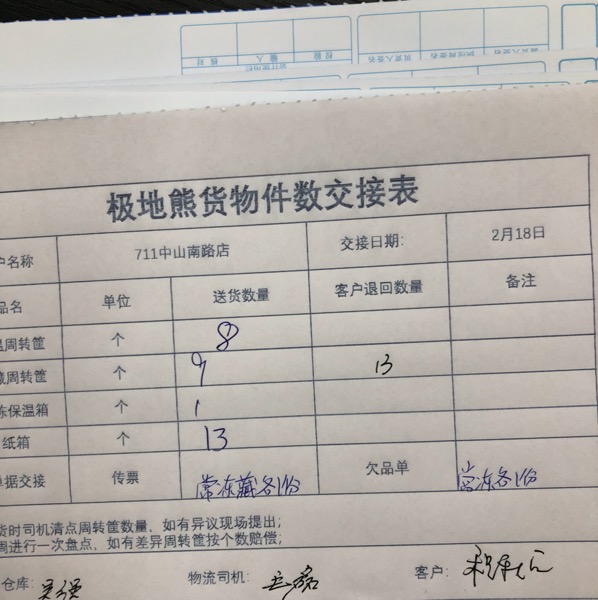 极地熊货物件数交接表
户名称 711中山南路店 交接日期: 2月18日
品名 单位 送货数量 客户退回数量 备注
温周转筐 个 8
藏周转筐 个 9 13
冻保温箱 个 1
纸箱 个 13
单据交接 传票 常冻藏各1份 欠品单 常冻各1份
货时司机清点周转筐数量,如有异议现场提出;
周进行一次盘点,如有差异周转筐按个数赔偿;
仓库: 物流司机: 客户: